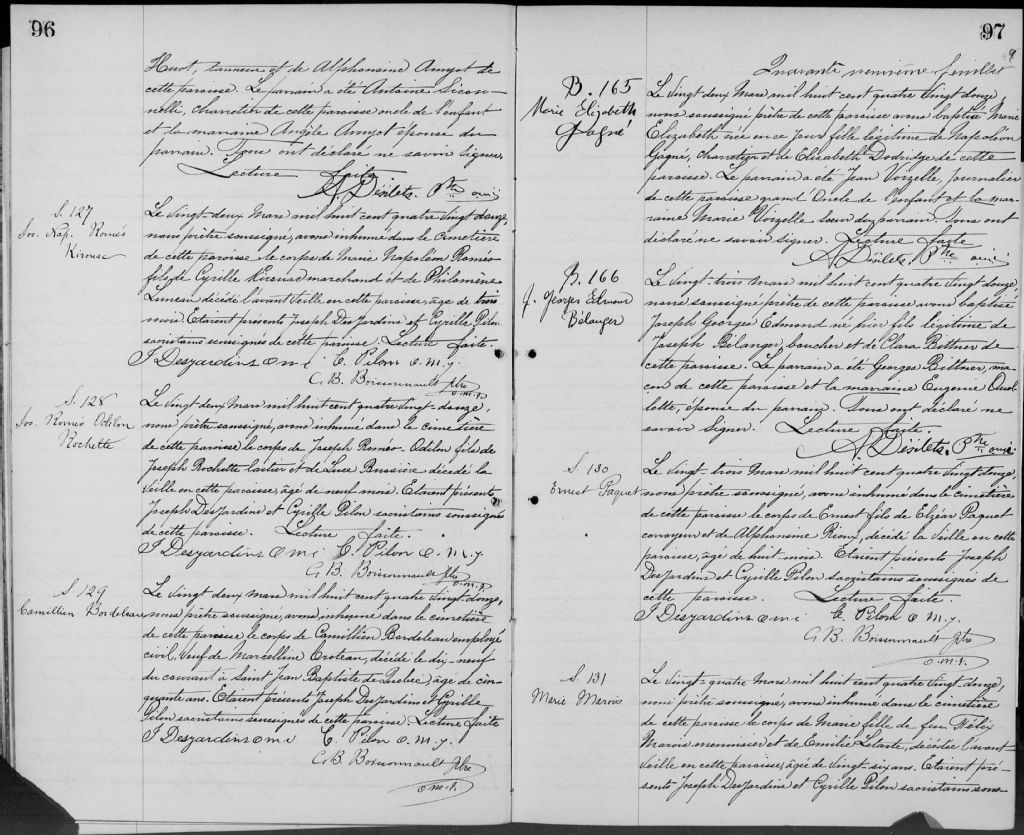 96
Huot, tanneur et de Alphonsine Amyot de
cette paroisse. Le parrain a été Antoine Sicon-
nelli, charretier de cette paroisse oncle de l'enfant
et la marraine Angèle Amyot épouse du
parrain. Tous ont déclaré ne savoir signer.
Lecture faite
A. Désilets. Ptre omi
S. 127
Jos. Nap. Roméo
Kirouac
Le vingt-deux Mars mil huit cent quatre vingt-douze,
nous prêtre soussigné, avons inhumé dans le cimetière
de cette paroisse le corps de Marie Napoléon Roméo
fils de Cyrille Kirouac marchand et de Philomène
Luneau décédé l'avant veille en cette paroisse, âgé de trois
mois. Etaient présents Joseph DesJardins et Cyrille Pilon
sacristains soussignés de cette paroisse. Lecture faite.
J Desjardins o m i C. Pilon o. m. j.
G. B. Boissonnault ptre
o. m. i.
S. 128
Jos. Roméo Odilon
Rochette
Le vingt-deux Mars mil huit cent quatre vingt-douze,
nous prêtre soussigné, avons inhumé dans le cimetière
de cette paroisse le corps de Joseph Roméo Odilon fils de
Joseph Rochette laitier et de Luce Bussière décédé la
veille en cette paroisse, âgé de neuf mois. Etaient présents
Joseph DesJardins et Cyrille Pilon sacristains soussignés
de cette paroisse. Lecture faite.
J Desjardins o m i C. Pilon o. m. j.
G. B. Boissonnault ptre
o. m. i.
S 129
Camillien Bordeleau
Le vingt deux mars mil huit cent quatre vingt-douze,
nous prêtre soussigné, avons inhumé dans le cimetière
de cette paroisse le corps de Camillien Bordeleau employé
civil, veuf de Marcelline Croteau, décédé le dix-neuf
du courant à Saint Jean Baptiste de Québec âgé de cin-
quante ans. Etaient présents Joseph DesJardins et Cyrille
Pilon sacristains soussignés de cette paroisse. Lecture faite
J Desjardins o m i C. Pilon o. m. j.
G. B. Boissonnault ptre
o. m. i.
97
Quarante neuvième feuillet
B. 165
Marie Elizabeth
Gagné
Le vingt deux Mars mil huit cent quatre vingt douze,
nous soussigné prêtre de cette paroisse avons baptisé Marie
Elizabeth née en ce jour, fille légitime de Napoléon
Gagné, charretier et de Elizabeth Dodridge de cette
paroisse. Le parrain a été Jean Voizelle, journalier
de cette paroisse grand oncle de l'enfant et la mar-
raine Marie Voizelle soeur du parrain. Tous ont
déclaré ne savoir signer. Lecture faite
A. Désilets. Ptre omi
B. 166
J. Georges Edmond
Bélanger
Le vingt-trois Mars mil huit cent quatre vingt douze
nous soussigné prêtre de cette paroisse avons baptisé
Joseph Georges Edmond né hier fils légitime de
Joseph Bélanger, boucher et de Clara Bittner de
cette paroisse. Le parrain a été Georges Bittner, ma-
çon de cette paroisse et la marraine Eugénie
épouse du parrain. Tous ont déclaré ne
savoir signer. Lecture faite.
A. Désilets. Ptre omi
S. 130
Ernest Paquet
Le vingt-trois Mars mil huit cent quatre vingt-douze,
nous prêtre soussigné, avons inhumé dans le cimetière
de cette paroisse le corps de Ernest fils de Elzéar Paquet
corroyeur et de Alphonsine, décédé la veille en cette
paroisse, âgé de huit mois. Etaient présents Joseph
DesJardins et Cyrille Pilon sacristains soussignés de
cette paroisse. Lecture faite.
J Desjardins o m i C. Pilon o m. j.
G B. Boissonnault ptre
o. m. i.
S. 131
Marie Marois
Le vingt-quatre Mars mil huit cent quatre vingt-douze,
nous prêtre soussigné, avons inhumé dans le cimetière
de cette paroisse le corps de Marie fille de feu Félix
Marois menuisier et de Emilie Letarte, décédée l'avant-
veille en cette paroisse, âgée de vingt-six ans. Etaient pré-
sents Joseph DesJardins et Cyrille Pilon sacristains sous-